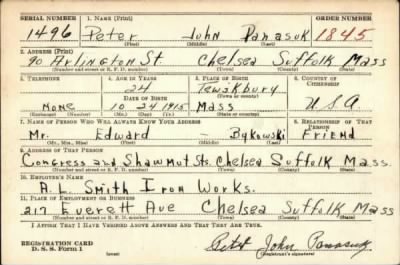 SERIAL NUMBER 1. NAME (Print) ORDER NUMBER
1496 Peter John Panasuk 1845
(First) (Middle) (Last)
2. ADDRESS (Print)
90 Arlington St. Chelsea Suffolk Mass
(Number and street or R. F. D. number) (Town) (County) (State)
3. TELEPHONE 4. AGE IN YEARS 5. PLACE OF BIRTH 6. COUNTRY OF CITIZENSHIP
24 Tewskbury
DATE OF BIRTH (Town or county)
None 10 24 1915 Mass U.S.A
(Exchange) (Number) (Mo.) (Day) (Yr.) (State or country)
7. NAME OF PERSON WHO WILL ALWAYS KNOW YOUR ADDRESS 8. RELATIONSHIP OF THAT PERSON
Mr. Edward - Bykowski Friend
(Mr., Mrs., Miss) (First) (Middle) (Last)
9. ADDRESS OF THAT PERSON
Congress and Shawmut Sts. Chelsea Suffolk Mass.
(Number and street or R. F. D. number) (Town) (County) (State)
10. EMPLOYER'S NAME
A. L. Smith Iron Works.
11. PLACE OF EMPLOYMENT OR BUSINESS
217 Everett Ave Chelsea Suffolk Mass
(Number and street or R. F. D. number) (Town) (County) (State)
I AFFIRM THAT I HAVE VERIFIED ABOVE ANSWERS AND THAT THEY ARE TRUE.
REGISTRATION CARD
D. S. S. Form 1 (over) Peter John Panasuk
(Registrant's signature)